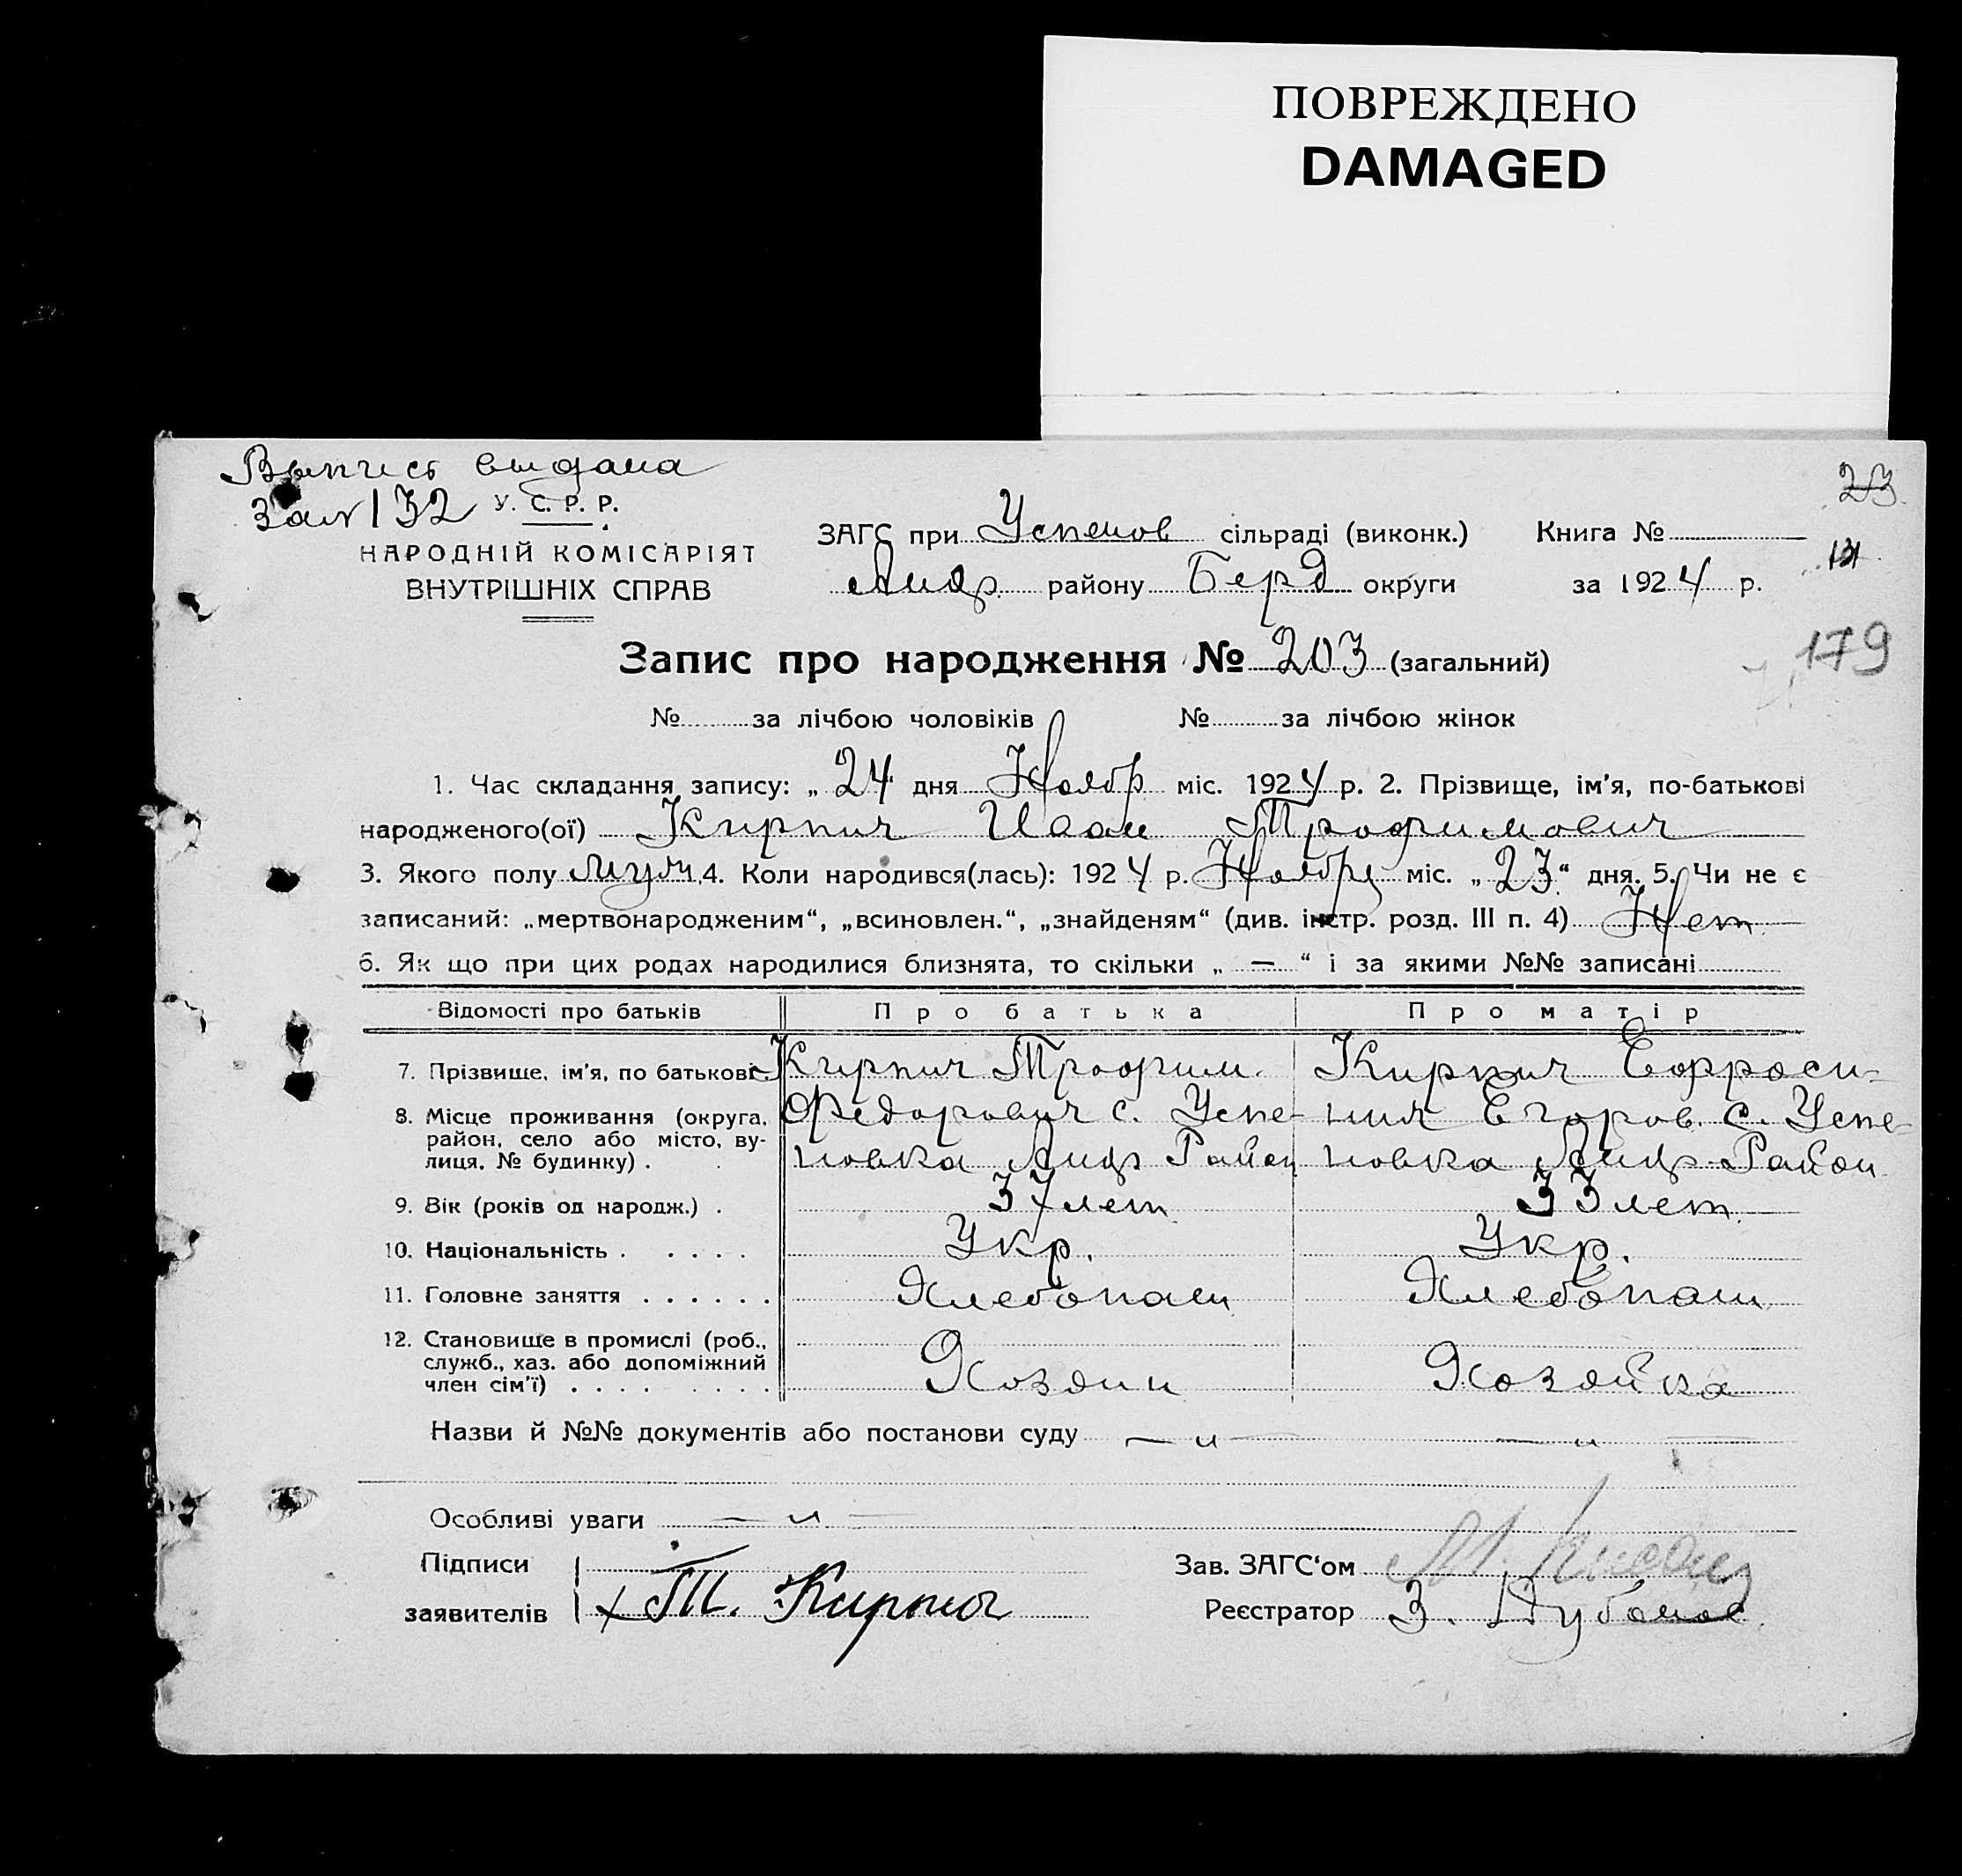 ПОВРЕЖДЕНО
DAMAGED
Выпись выдана
за № 132
У. С. Р. Р.
НАРОДНІЙ КОМІСАРІЯТ
ВНУТРІШНІХ СПРАВ
23
ЗАГС при Успенов сільраді (виконк.) Книга №
131
району Берд округи за 1924 р.
Запис про народження № 203 (загальний)
179
№ за лічбою чоловіків № за лічбою жінок
1. Час складання запису: „ 24 " дня Ноябр міс. 1924 р. 2. Прізвище, ім'я, по-батькові
народженого(ої) Кирпич Иван Трофимович
3. Якого полу муж. 4. Коли народився(лась): 1924 р. Ноябр міс. „ 23 “ дня. 5. Чи не є
записаний: „мертвонародженим“, „всиновлен.“, „знайденям“ (див. інстр. розд. III п. 4) Нет
6. Як що при цих родах народилися близнята, то скільки „ — “ і за якими №№ записані
Відомості про батьків Про батька Про матір
7. Прізвище, ім'я, по батькові Кирпич Трофим. Кирпич Ефроси-
8. Місце проживання (округа, Федорович с. Успе- ния Егоров. с. Успе-
район, село або місто, ву-
лиця, № будинку) . новка Район новка Район
9. Вік (років од народж.) . 37 лет 33 лет.
10. Національність . . . . . Укр. Укр.
11. Головне заняття . . . . . . Хлебопаш Хлебопаш
12. Становище в промислі (роб.,
служб., хаз. або допоміжний
член сім'ї) . . . . . . . . Хозяин Хозяйка
Назви й №№ документів або постанови суду — „ — — „ —
Особливі уваги — „ —
Підписи
заявителів Т. Кирпич
Зав. ЗАГС‘ом
Реєстратор З.